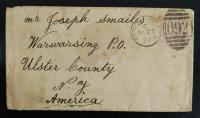 Mr Joseph Smailes
Warwarssing P.O.
Ulster County
N.Y
America
092